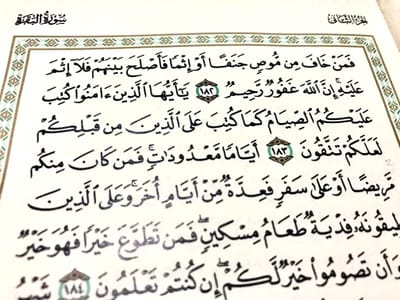 الجزء الثانى
سورة البقرة
فَمَنْ خَافَ مِن مُّوصٍ جَنَفًا أَوْ إِثْمًا فَأَصْلَحَ بَيْنَهُمْ فَلَآ إِثْمَ
عَلَيْهِ إِنَّ ٱللَّهَ غَفُورٌ رَّحِيمٌ ١٨٢ يَـٰٓأَيُّهَا ٱلَّذِينَ ءَامَنُوا۟ كُتِبَ
عَلَيْكُمُ ٱلصِّيَامُ كَمَا كُتِبَ عَلَى ٱلَّذِينَ مِن قَبْلِكُمْ
لَعَلَّكُمْ تَتَّقُونَ ١٨٣ أَيَّامًا مَّعْدُودَٰتٍ فَمَن كَانَ مِنكُم
مَّرِيضًا أَوْ عَلَىٰ سَفَرٍ فَعِدَّةٌ مِّنْ أَيَّامٍ أُخَرَ وَعَلَى ٱلَّذِينَ
يُطِيقُونَهُۥ فِدْيَةٌ طَعَامُ مِسْكِينٍ فَمَن تَطَوَّعَ خَيْرًا فَهُوَ خَيْرٌ
وَأَن تَصُومُوا۟ خَيْرٌ لَّكُمْ إِن كُنتُمْ تَعْلَمُونَ ١٨٤ شَهْرُ